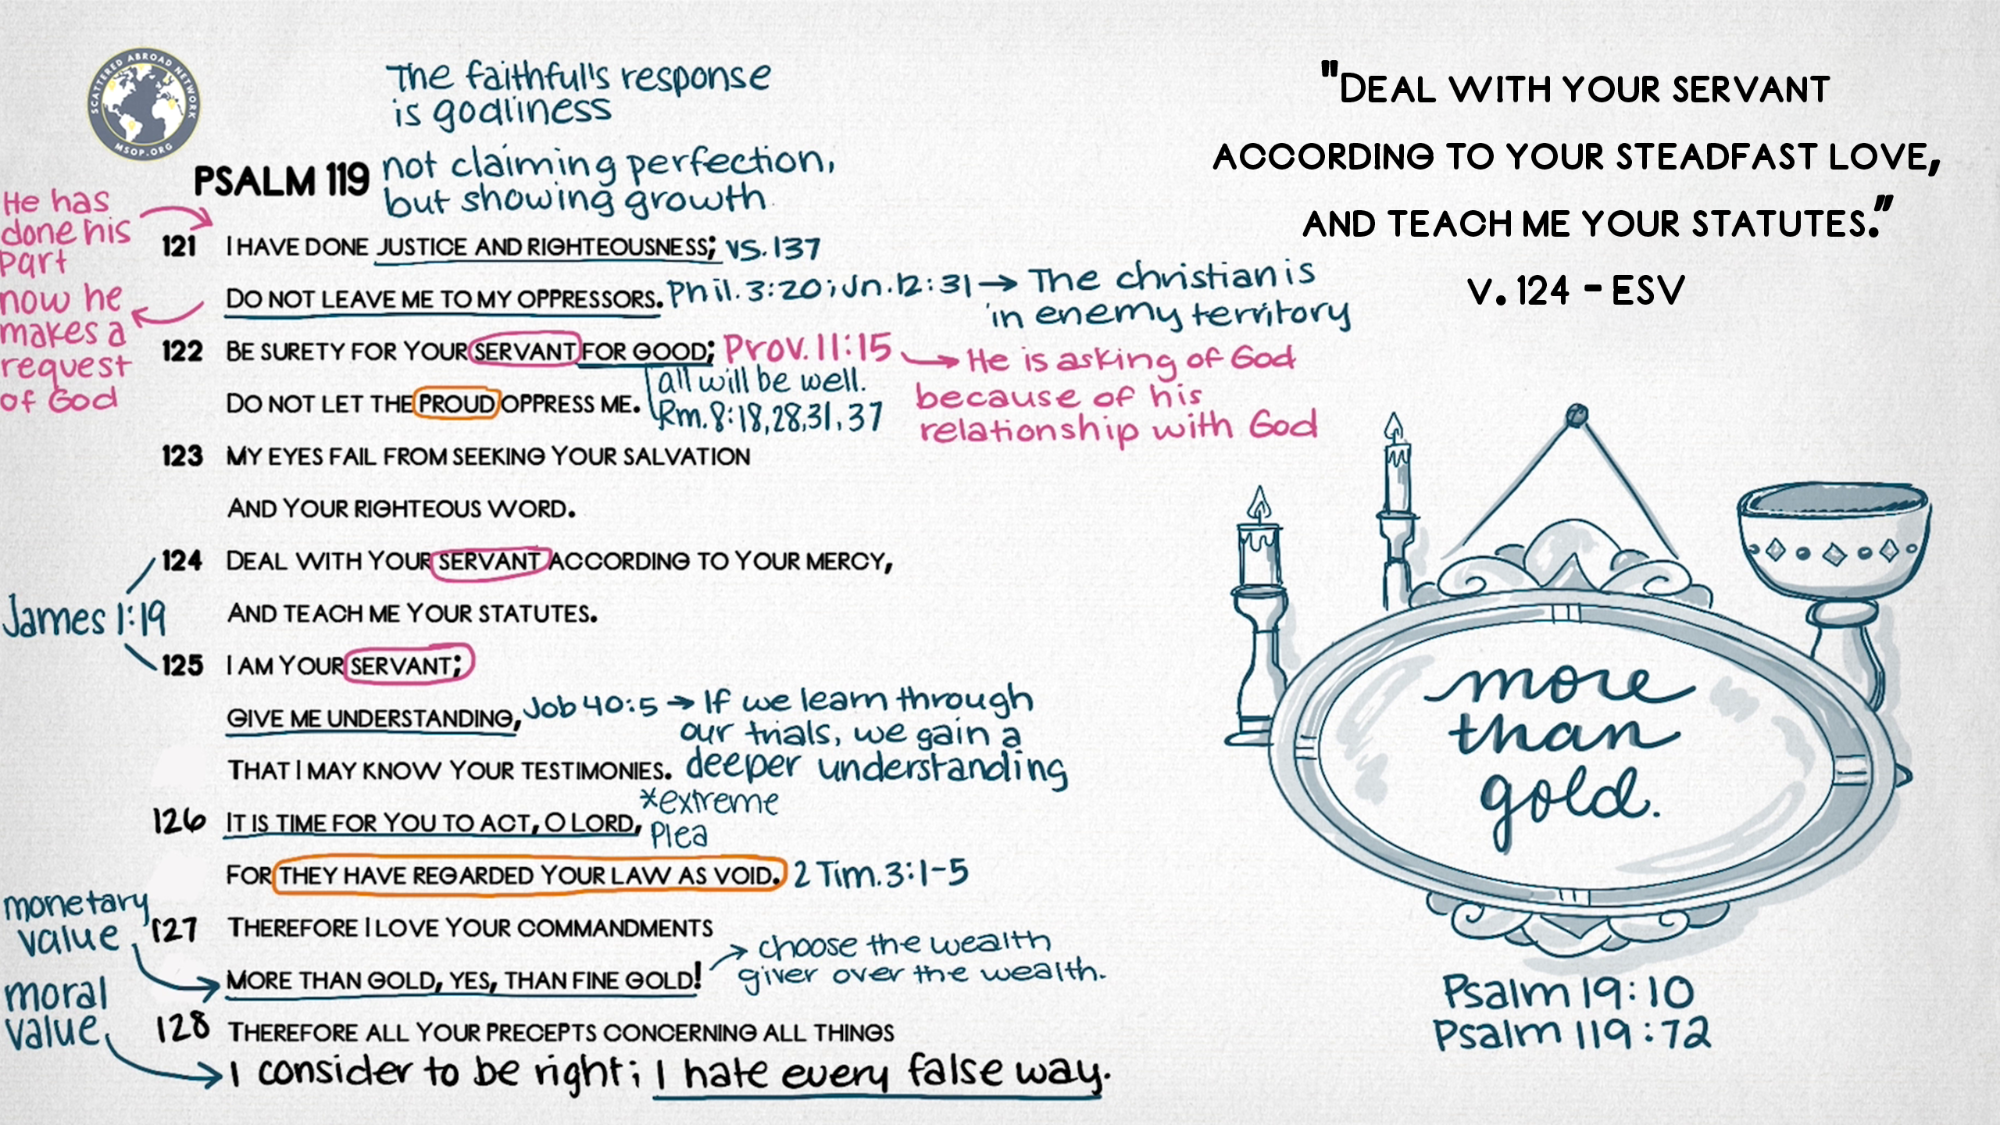 SCATTERED ABROAD NETWORK
MSOP.ORG
The faithful's response
is godliness
PSALM 119
not claiming perfection,
but showing growth
He has
done his
part
now he
makes a
request
of God
121 I HAVE DONE JUSTICE AND RIGHTEOUSNESS; vs. 137
DO NOT LEAVE ME TO MY OPPRESSORS. Phil. 3:20; Jn. 12:31 → The christian is
in enemy territory
122 BE SURETY FOR YOUR SERVANT FOR GOOD; Prov. 11:15 → He is asking of God
because of his
relationship with God
all will be well.
Rm. 8:18,28,31,37
DO NOT LET THE PROUD OPPRESS ME.
123 MY EYES FAIL FROM SEEKING YOUR SALVATION
AND YOUR RIGHTEOUS WORD.
124 DEAL WITH YOUR SERVANT ACCORDING TO YOUR MERCY,
AND TEACH ME YOUR STATUTES.
James 1:19
125 I AM YOUR SERVANT;
GIVE ME UNDERSTANDING, Job 40:5 → If we learn through
our trials, we gain a
deeper understanding
THAT I MAY KNOW YOUR TESTIMONIES.
*extreme
Plea
126 IT IS TIME FOR YOU TO ACT, O LORD,
FOR THEY HAVE REGARDED YOUR LAW AS VOID. 2 Tim. 3:1-5
monetary
value
127 THEREFORE I LOVE YOUR COMMANDMENTS
MORE THAN GOLD, YES, THAN FINE GOLD! → choose the wealth
giver over the wealth.
moral
value
128 THEREFORE ALL YOUR PRECEPTS CONCERNING ALL THINGS
I consider to be right; I hate every false way.
"DEAL WITH YOUR SERVANT
ACCORDING TO YOUR STEADFAST LOVE,
AND TEACH ME YOUR STATUTES."
V. 124 - ESV
more
than
gold.
Psalm 19:10
Psalm 119:72